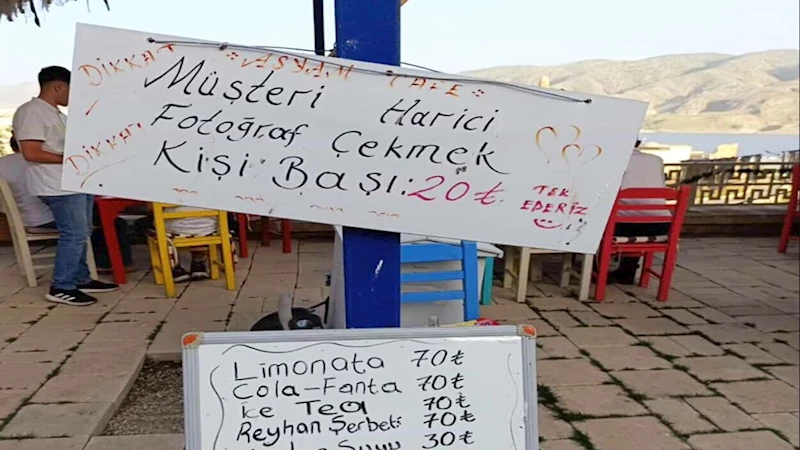 DİKKAT ASYAM CAFE
Müşteri Harici
Fotoğraf Çekmek
DİKKAT
Kişi Başı: 20₺.
TEK
EDERİZ
Limonata 70₺
Cola-Fanta 70₺
İce Tea 70₺
Reyhan Şerbeti 70₺
30₺